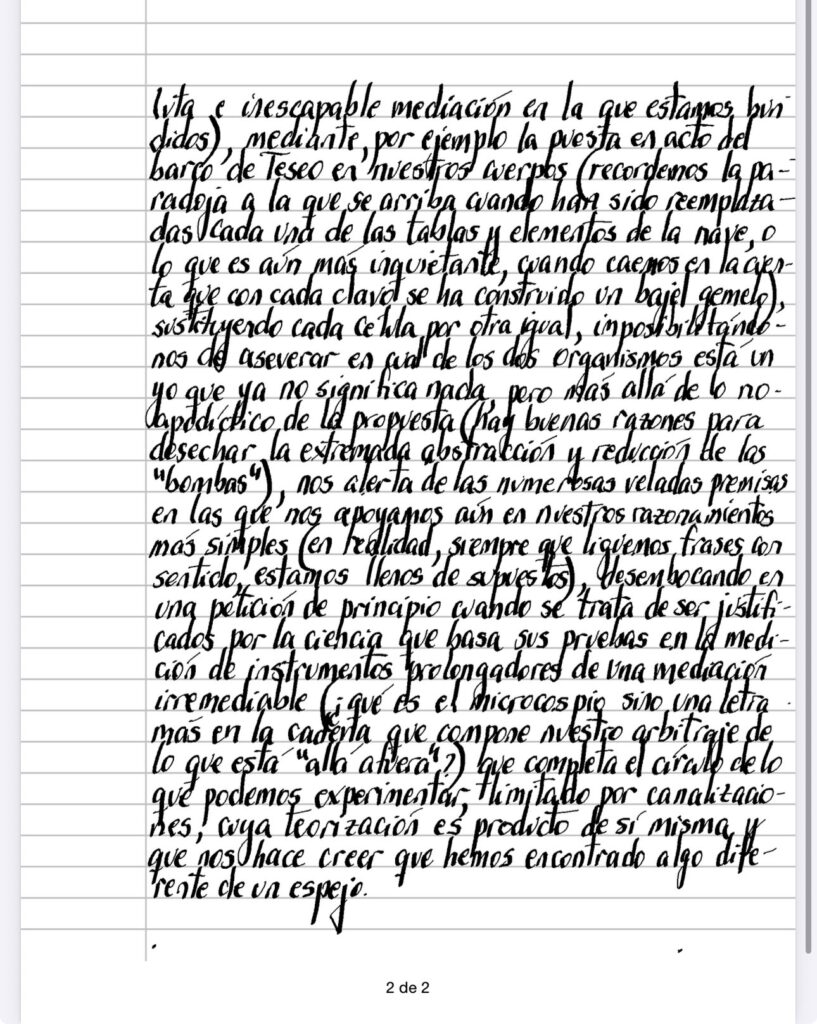 luta e inescapable mediación en la que estamos hun-
didos), mediante, por ejemplo la puesta en acto del
barco de Teseo en nuestros cuerpos (recordemos la pa-
radoja a la que se arriba cuando han sido reemplaza-
das cada una de las tablas y elementos de la nave, o
lo que es aún más inquietante, cuando caemos en la cuen-
ta que con cada clavo se ha construido un bajel gemelo),
sustituyendo cada célula por otra igual, imposibilitándo-
nos de aseverar en cuál de los dos organismos está un
yo que ya no significa nada, pero más allá de lo no-
apodíctico de la propuesta (hay buenas razones para
desechar la extremada abstracción y reducción de las
"bombas"), nos alerta de las numerosas veladas premisas
en las que nos apoyamos aún en nuestros razonamientos
más simples (en realidad, siempre que liguemos frases con
sentido, estamos llenos de supuestos), desembocando en
una petición de principio cuando se trata de ser justifi-
cados por la ciencia que basa sus pruebas en la medi-
ción de instrumentos prolongadores de una mediación
irremediable (¿qué es el microcospio sino una letra
más en la cadena que compone nuestro arbitraje de
lo que está "allá afuera"?) que completa el círculo de lo
que podemos experimentar, limitado por canalizacio-
nes, cuya teorización es producto de sí misma y
que nos hace creer que hemos encontrado algo dife-
rente de un espejo.
2 de 2